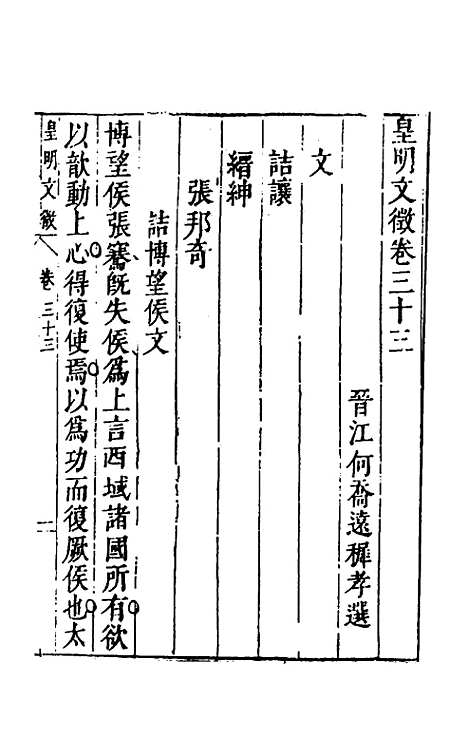 皇明文徵卷三十三
晉江何喬遠穉孝選
文
詰讓
縉紳
張邦奇
詰博望侯文
博望侯張騫既失侯為上言西域諸國所有欲
以歆動上心得復使焉以為功而復厥侯也太
皇明文徵 卷三十三 一